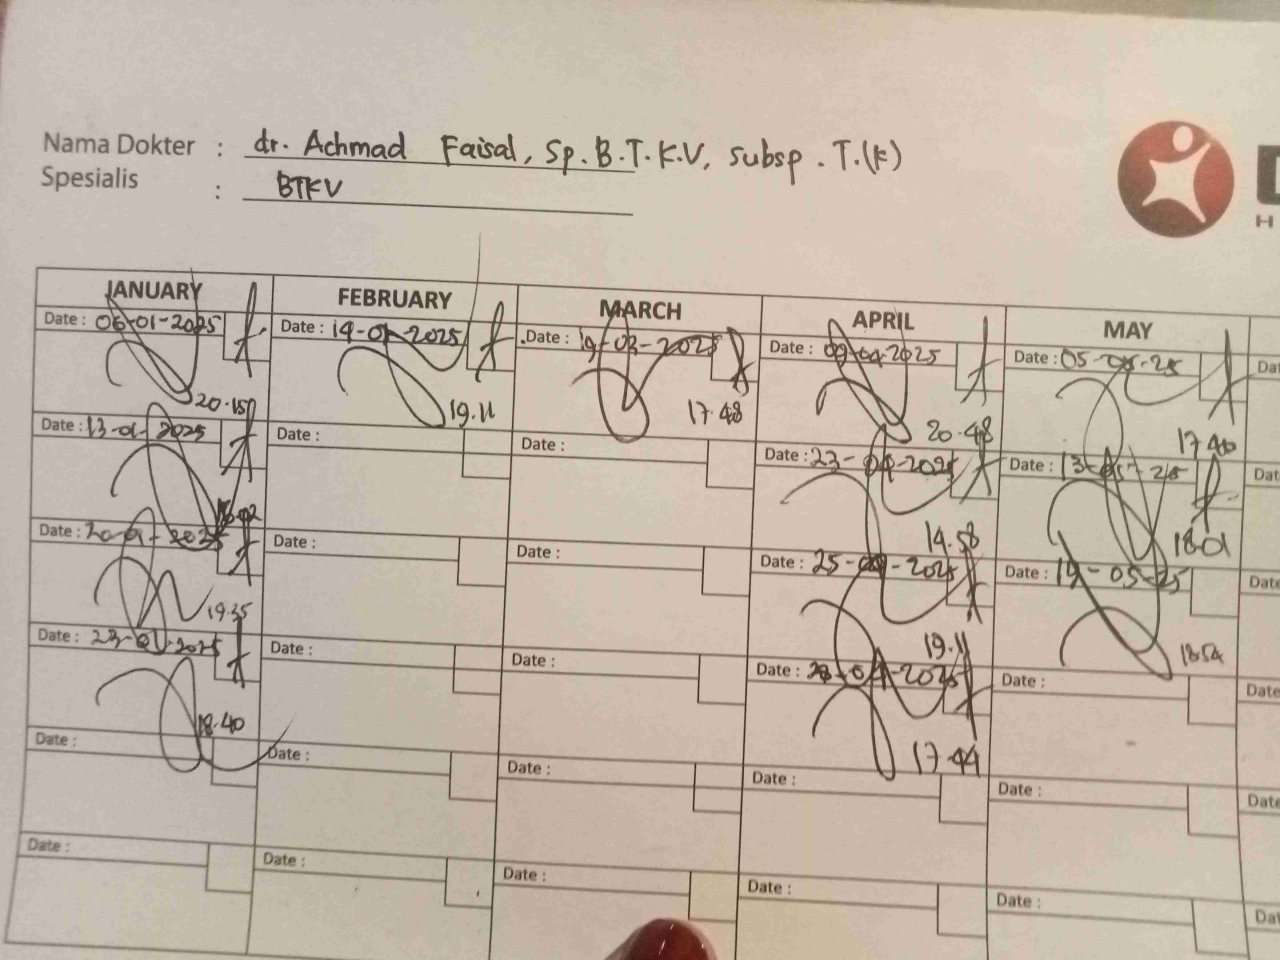 Nama Dokter : dr. Achmad Faisal, Sp.B.T.K.V, subsp. T.(K)
Spesialis : BTKV
H
JANUARY FEBRUARY MARCH APRIL MAY
Date : 06-01-2025 Date : 14-02-2025 Date : 19-03-2025 Date : 09-04-2025 Date : 05-05-25 Dat
20.15 19.11 17.48 20.48 17.40
Date : 13-01-2025 Date : Date : Date : 23-04-2025 Date : 13-05-25 Dat
14.58 18.01
Date : 20-01-2025 Date : Date : Date : 25-04-2025 Date : 19-05-25 Date
19.35 19.11 18.54
Date : 23-01-2025 Date : Date : Date : 28-04-2025 Date : Date
18.40 17.44
Date : Date : Date : Date : Date : Date
Date : Date : Date : Date : Date : Dat